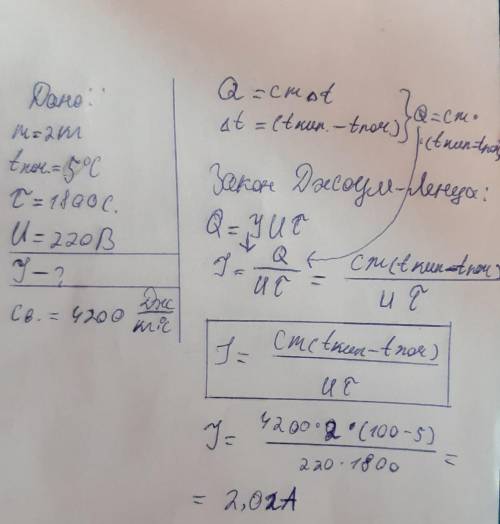 Дано:
m=2кг
tнач.=5°С
τ=1800с.
U=220В
I-?
Св.=4200 Дж/кг°С
Q=cmΔt
Δt=(tкип.-tнач)} Q=cm·
·(tкип-tнач)
Закон Джоуля-Ленца:
Q=IUτ
I=Q/Uτ=cm(tкип-tнач)/Uτ
I=cm(tкип-tнач)/Uτ
I=4200·2·(100-5)/220·1800=
=2,02А